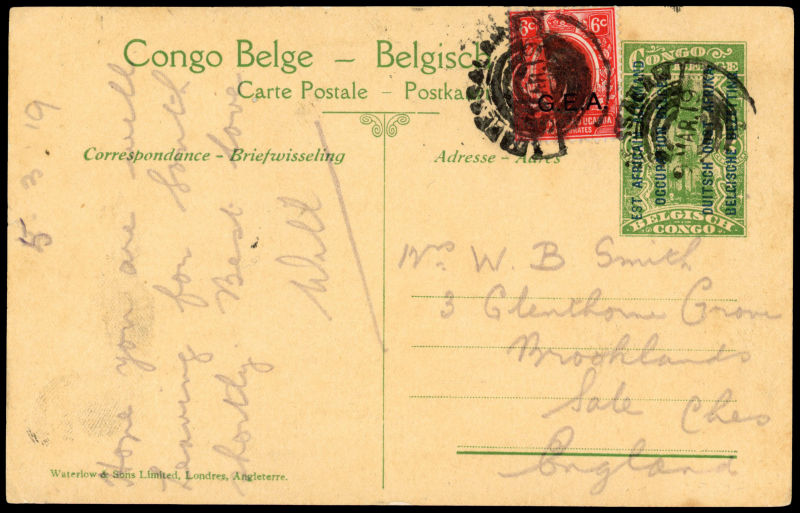 Congo Belge – Belgisch
Carte Postale – Postka
6c 6c
G.E.A.
UGANDA
CONGO
BELGE
EST AFRICAIN ALLEMAND
OCCUPATION BELGE
DUITSCH OOST AFRIKA
BELGISCHE BEZETTING
BELGISCH
CONGO
MR 19
Correspondance – Briefwisseling
Adresse – Adres
5.3.19
Hope you are well
Leaving for South
shortly. Best love
Will
Mrs W. B Smith
3 Glenthorne Grove
Brooklands
Sale Ches
England
Waterlow & Sons Limited, Londres, Angleterre.